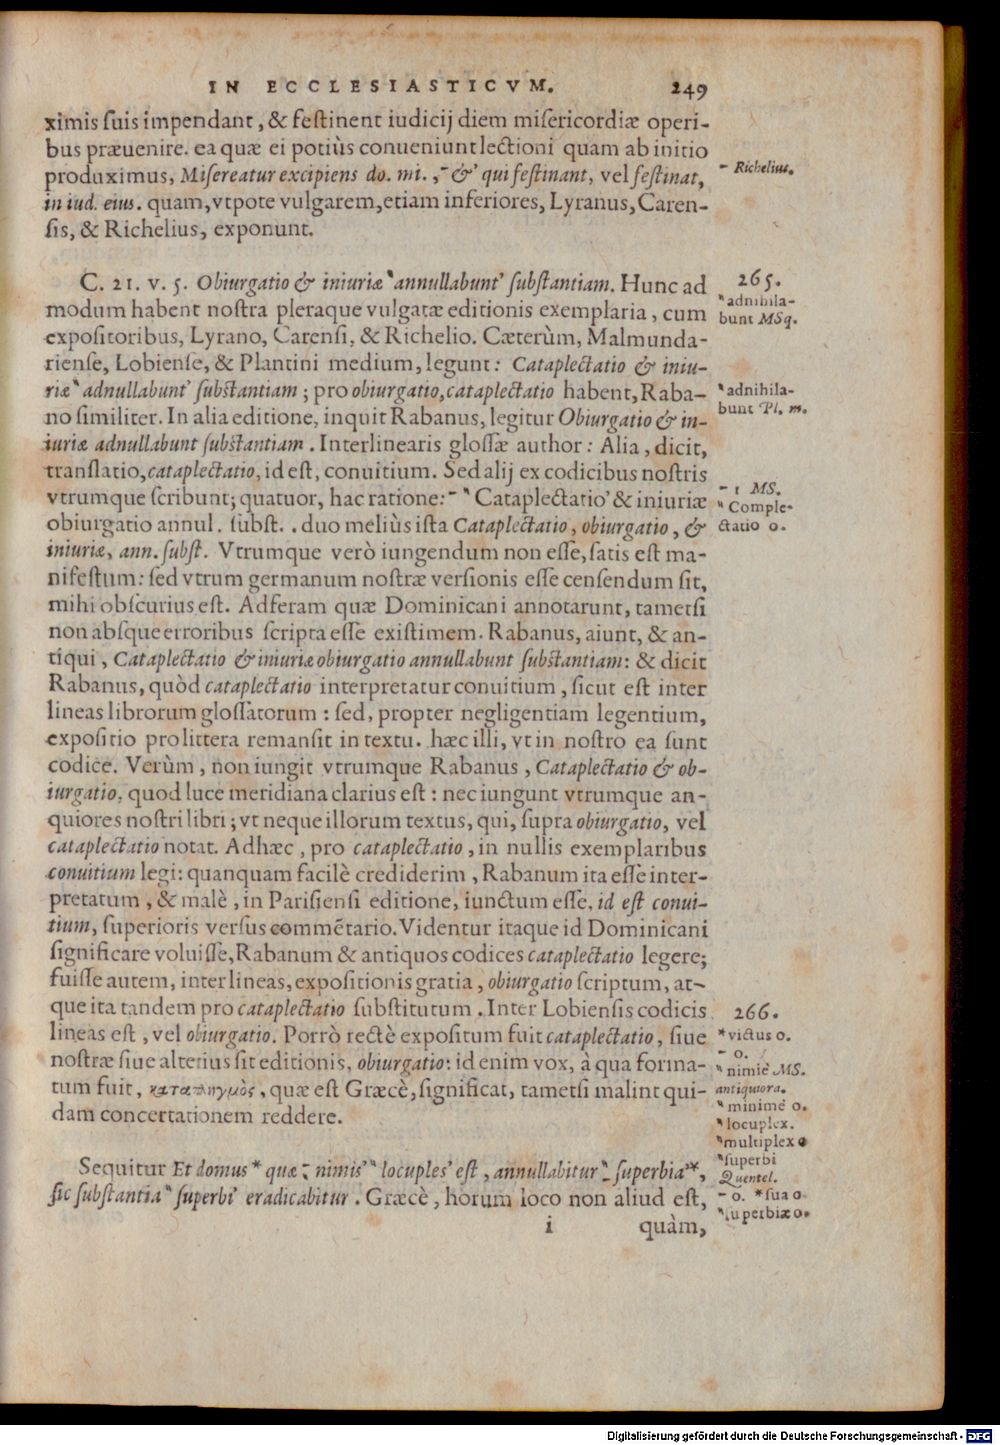 IN ECCLESIASTICVM. 249
ximis suis impendant, & festinent iudicij diem misericordiæ operi-
bus præuenire. ea quæ ei potiùs conueniunt lectioni quam ab initio
produximus, Misereatur excipiens do. mi. ,⁻ &' qui festinant, vel festinat,
in iud. eius. quam, vtpote vulgarem, etiam inferiores, Lyranus, Caren-
sis, & Richelius, exponunt.
⁻ Richelius.
C. 21. v. 5. Obiurgatio & iniuriæ ‶annullabunt' substantiam. Hunc ad
modum habent nostra pleraque vulgatæ editionis exemplaria, cum
expositoribus, Lyrano, Carensi, & Richelio. Cæterùm, Malmunda-
riense, Lobiense, & Plantini medium, legunt: Cataplectatio & iniu-
riæ ‶adnullabunt' substantiam; pro obiurgatio, cataplectatio habent, Raba-
no similiter. In alia editione, inquit Rabanus, legitur Obiurgatio & in-
iuriæ adnullabunt substantiam. Interlinearis glossæ author: Alia, dicit,
translatio, cataplectatio, id est, conuitium. Sed alij ex codicibus nostris
vtrumque scribunt; quatuor, hac ratione: ⁻ ‶Cataplectatio' & iniuriæ
obiurgatio annul. subst. . duo meliùs ista Cataplectatio, obiurgatio, &
iniuriæ, ann. subst. Vtrumque verò iungendum non esse, satis est ma-
nifestum: sed vtrum germanum nostræ versionis esse censendum sit,
mihi obscurius est. Adferam quæ Dominicani annotarunt, tametsi
non absque erroribus scripta esse existimem. Rabanus, aiunt, & an-
tiqui, Cataplectatio & iniuriæ obiurgatio annullabunt substantiam: & dicit
Rabanus, quòd cataplectatio interpretatur conuitium, sicut est inter
lineas librorum glossatorum: sed, propter negligentiam legentium,
expositio pro littera remansit in textu. hæc illi, vt in nostro ea sunt
codice. Verùm, non iungit vtrumque Rabanus, Cataplectatio & ob-
iurgatio, quod luce meridiana clarius est: nec iungunt vtrumque an-
quiores nostri libri; vt neque illorum textus, qui, supra obiurgatio, vel
cataplectatio notat. Adhæc, pro cataplectatio, in nullis exemplaribus
conuitium legi: quanquam facilè crediderim, Rabanum ita esse inter-
pretatum, & malè, in Parisiensi editione, iunctum esse, id est conui-
tium, superioris versus commẽtario. Videntur itaque id Dominicani
significare voluisse, Rabanum & antiquos codices cataplectatio legere;
fuisse autem, inter lineas, expositionis gratia, obiurgatio scriptum, at-
que ita tandem pro cataplectatio substitutum. Inter Lobiensis codicis
lineas est, vel obiurgatio. Porrò rectè expositum fuit cataplectatio, siue
nostræ siue alterius sit editionis, obiurgatio: id enim vox, à qua forma-
tum fuit, καταπληγμὸς, quæ est Græcè, significat, tametsi malint qui-
dam concertationem reddere.
265.
‶adnihila-
bunt MSq.
‶adnihila-
bunt Pl. m.
⁻ 1 MS.
‶Comple-
ctatio o.
Sequitur Et domus * quæ ⁻, nimis' ‶locuples' est, annullabitur ‶⁻ superbia'*,
sic substantia ‶superbi' eradicabitur. Græcè, horum loco non aliud est,
266.
*victus o.
⁻ o.
‶nimiè MS.
antiquiora.
‶minimè o.
‶locuplex.
‶multiplex o
‶superbi
Quentel.
⁻ o. *sua o
‶superbiæ o.
i quàm,
Digitalisierung gefördert durch die Deutsche Forschungsgemeinschaft - DFG